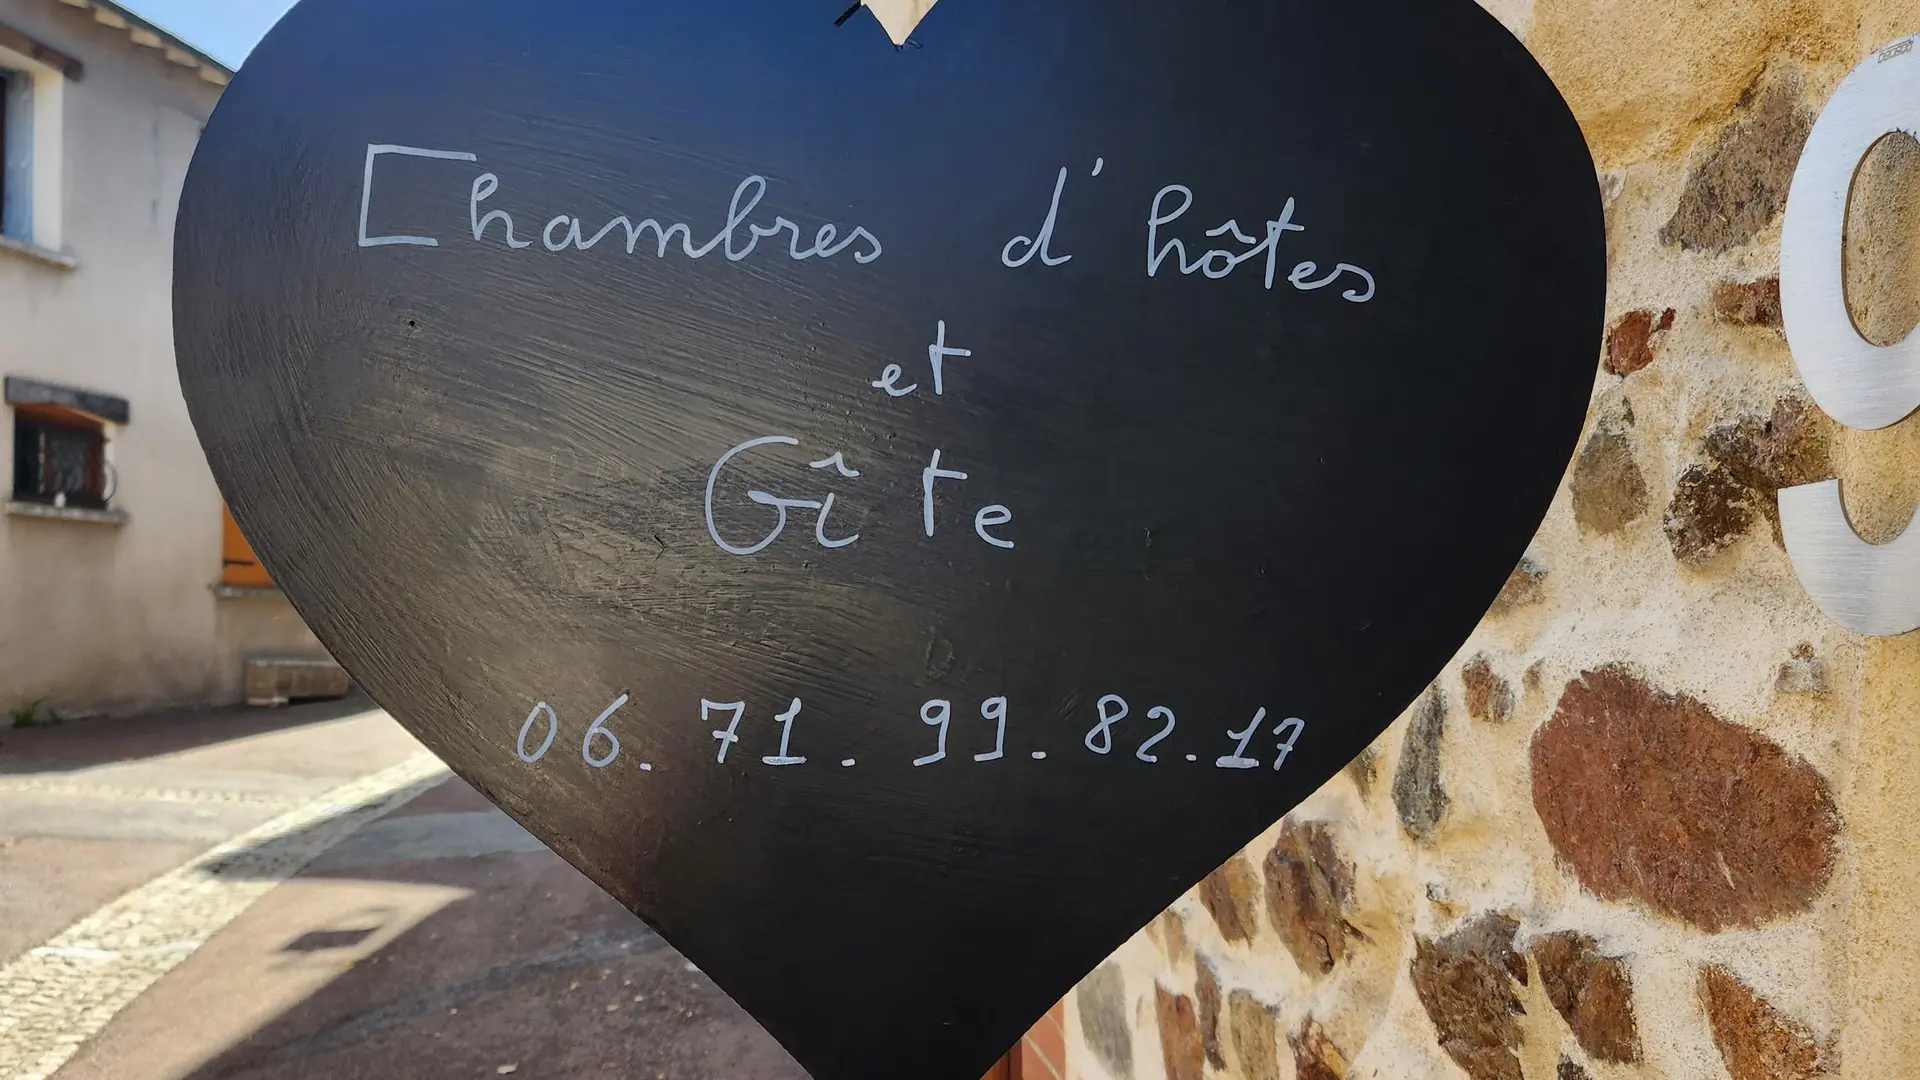 Chambres d'hôtes
et
Gîte
06.71.99.82.17
9